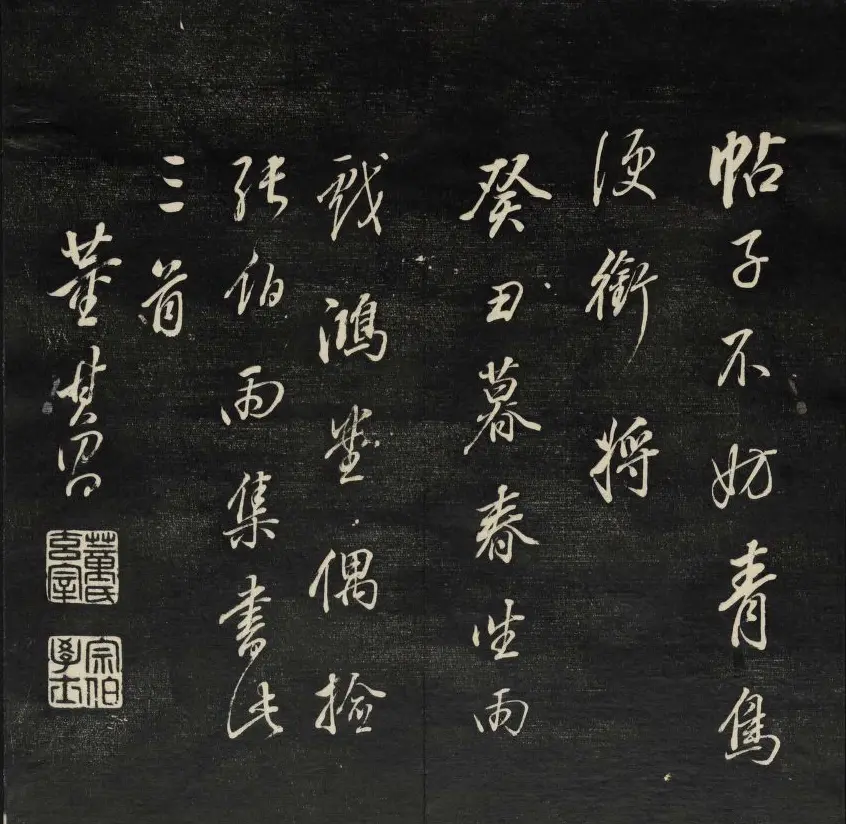 帖子不妨青鳥
便銜將
癸丑暮春坐雨
戲鴻堂偶撿
張伯雨集書此
三首
董其昌
董氏玄宰
宗伯學士